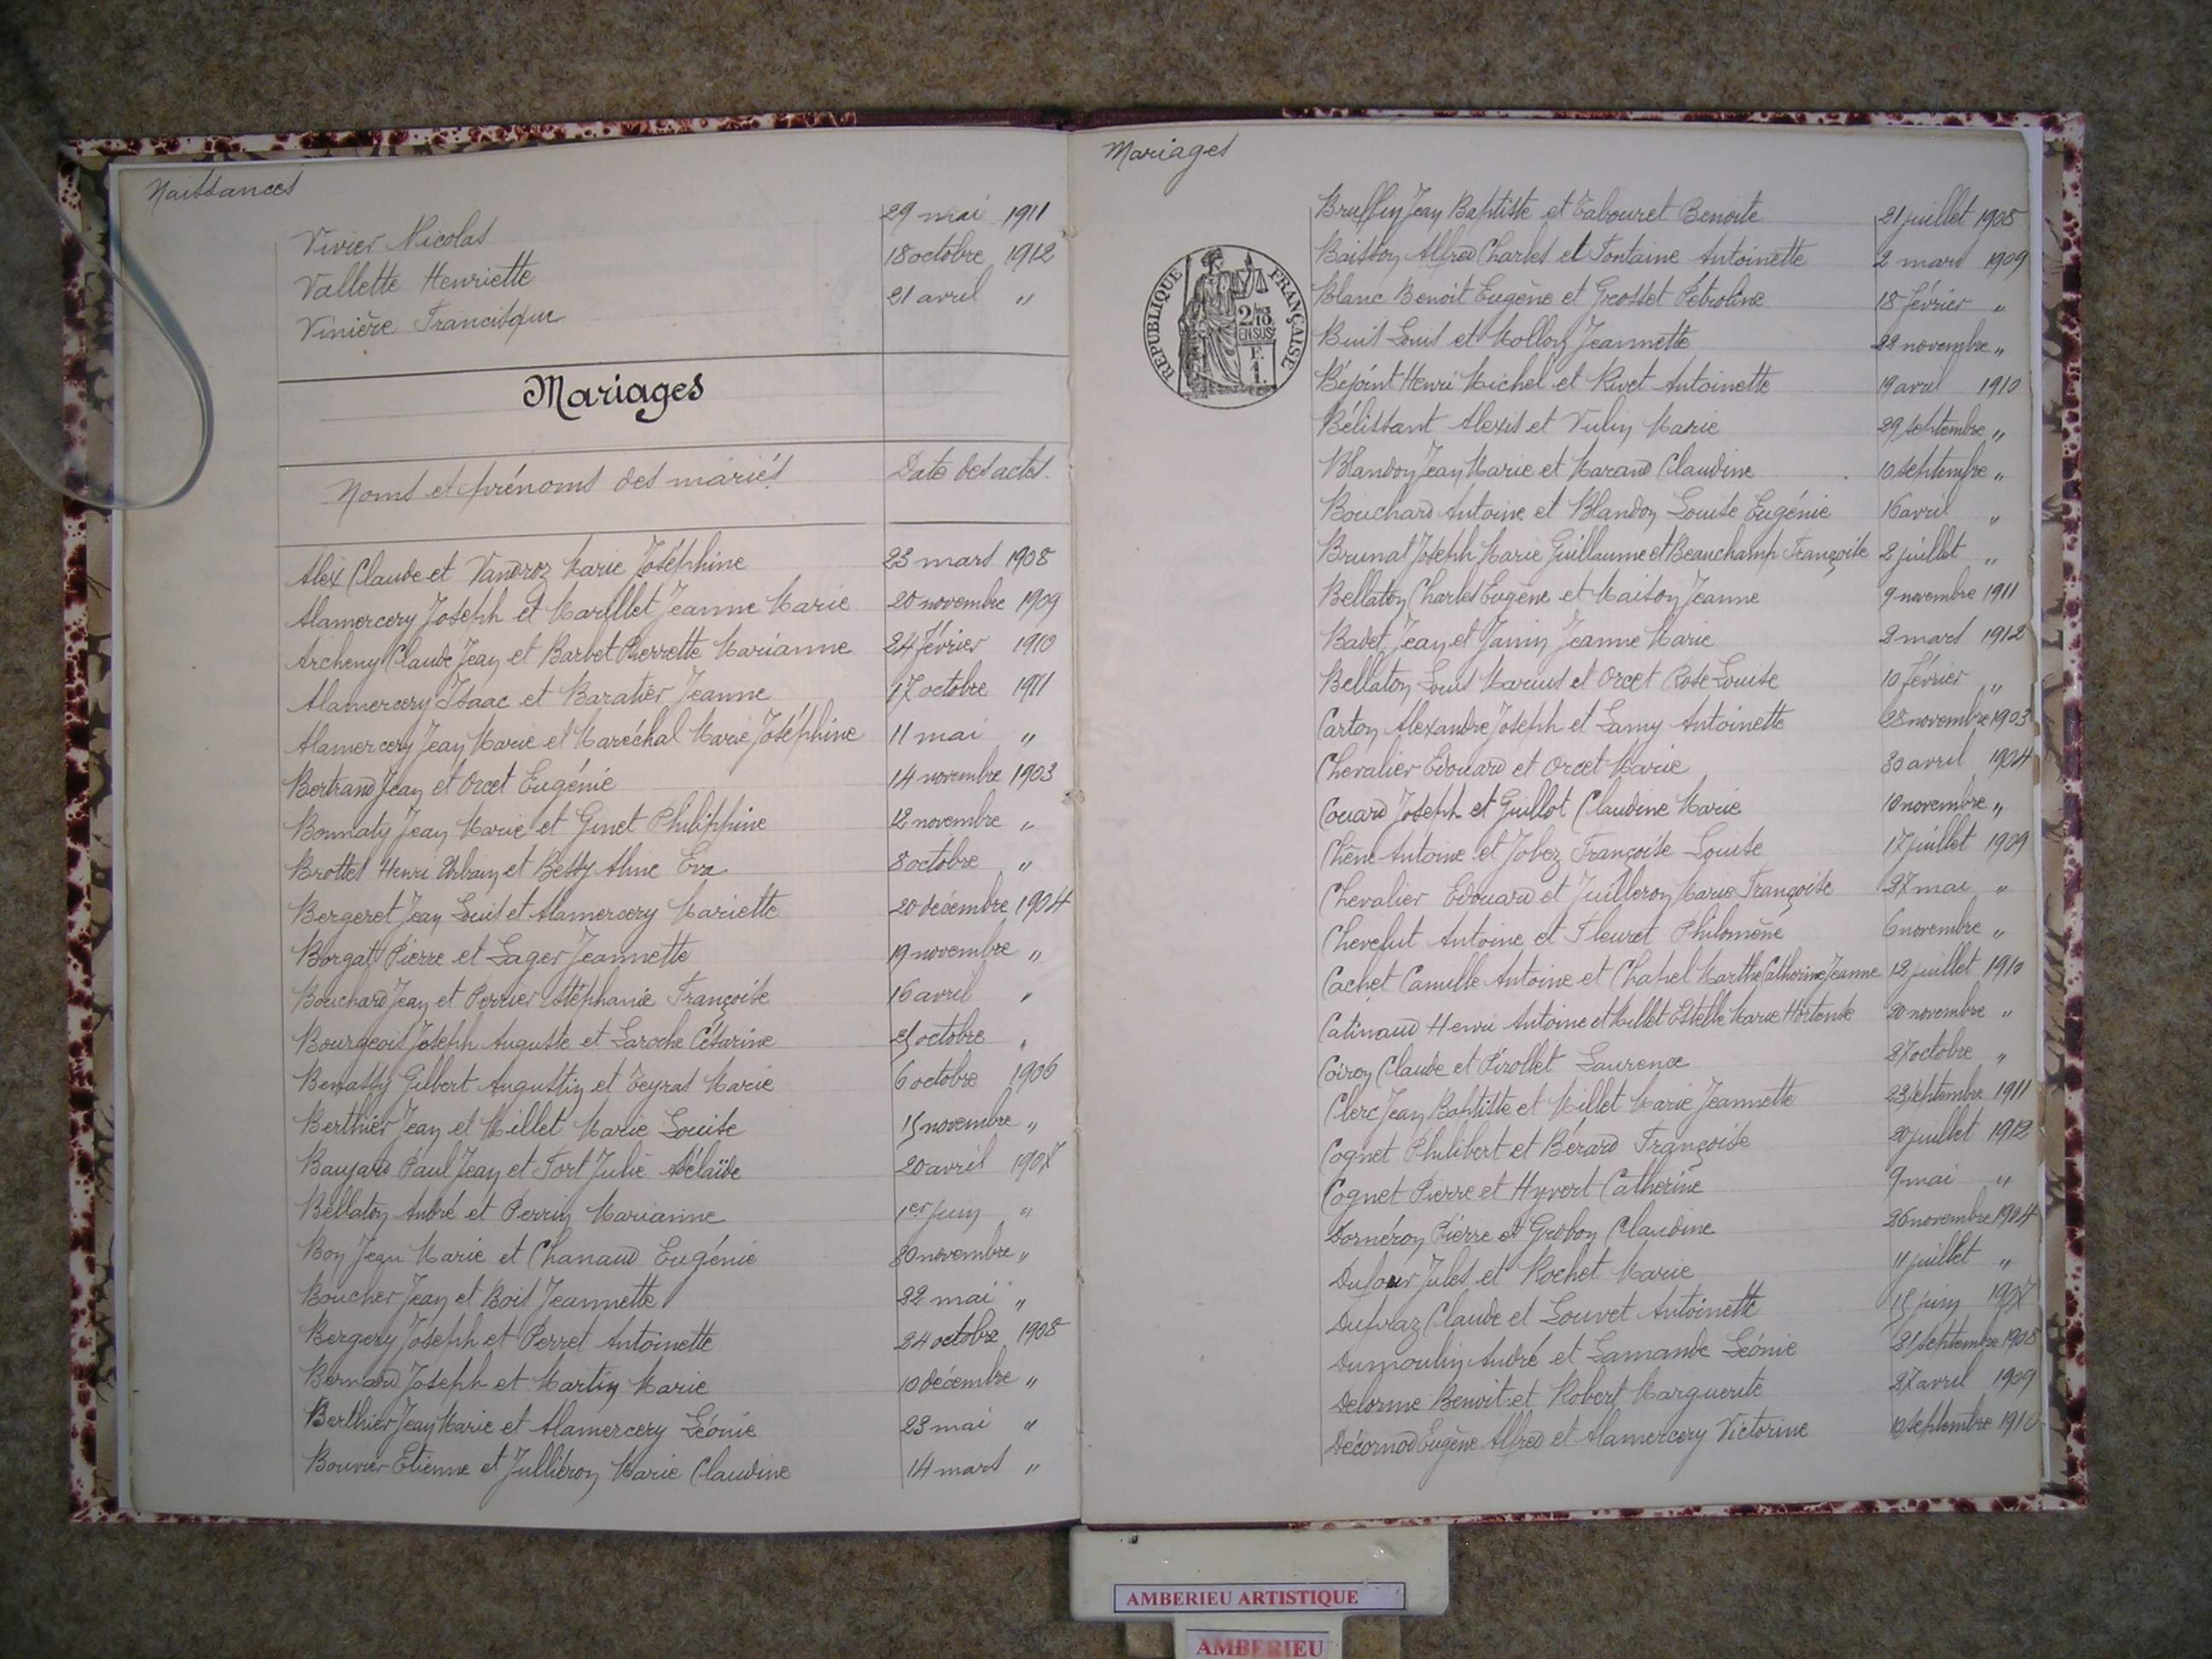 Naissances
Vivier Nicolas 29 mai 1911
Vallette Henriette 18 octobre 1912
Vinière Francisque 21 avril "
Mariages
Noms et prénoms des mariés Date des actes.
Alex Claude et Vandroz Marie Joséphine 23 mars 1908
Alamercery Joseph et Marillet Jeanne Marie 20 novembre 1909
Archeny Claude Jean et Barbet Pierrette Marianne 24 février 1910
Alamercery Isaac et Baratier Jeanne 17 octobre 1911
Alamercery Jean Marie et Maréchal Marie Joséphine 11 mai "
Bertrand Jean et Orcet Eugénie 14 novembre 1903
Bonnaty Jean Marie et Ginet Philippine 12 novembre "
Brottet Henri Urbain et Bessy Aline Eva 8 octobre "
Bergeret Jean Louis et Alamercery Mariette 20 décembre 1904
Borgat Pierre et Lager Jeannette 19 novembre "
Bouchard Jean et Perrier Stéphanie Françoise 16 avril "
Bourgeois Joseph Auguste et Laroche Césarine 25 octobre "
Benassy Gilbert Augustin et Teyras Marie 6 octobre 1906
Berthier Jean et Millet Marie Louise 15 novembre "
Baujard Paul Jean et Fort Julie Adélaïde 20 avril 1907
Bellaton André et Perrin Marianne 1er juin "
Boy Jean Marie et Chanaud Eugénie 30 novembre "
Boucher Jean et Bois Jeannette 22 mai "
Bergery Joseph et Perret Antoinette 24 octobre 1908
Bernard Joseph et Martin Marie 10 décembre "
Berthier Jean Marie et Alamercery Léonie 23 mai "
Bouvier Etienne et Julliéron Marie Claudine 14 mars "
Mariages
REPUBLIQUE FRANÇAISE
2/10
EN SUS
F.
1.
Bruffin Jean Baptiste et Tabouret Benoite 21 juillet 1908
Baisson Alfred Charles et Fontaine Antoinette 2 mars 1909
Blanc Benoit Eugène et Grosset Pétroline 18 février "
Buis Louis et Mollon Jeannette 28 novembre "
Béjoint Henri Michel et Rivet Antoinette 19 avril 1910
Bélissant Alexis et Vulin Marie 29 septembre "
Blandon Jean Marie et Marand Claudine 10 septembre "
Bouchard Antoine et Blandon Louise Eugénie 16 avril "
Brunat Joseph Marie Guillaume et Beauchamp Françoise 2 juillet "
Bellaton Charles Eugène et Maison Jeanne 9 novembre 1911
Badet Jean et Janin Jeanne Marie 2 mars 1912
Bellaton Louis Marius et Orcet Rose Louise 10 février "
Carton Alexandre Joseph et Lamy Antoinette 28 novembre 1903
Chevalier Edouard et Orcet Marie 30 avril 1904
Couard Joseph et Guillot Claudine Marie 10 novembre "
Chêne Antoine et Jobez Françoise Louise 17 juillet 1909
Chevalier Edouard et Juilleron Marie Françoise 27 mai "
Chevelut Antoine et Fleuret Philomène 6 novembre "
Cachet Camille Antoine et Chapel Marthe Catherine Jeanne 12 juillet 1910
Catinaud Henri Antoine et Millet Estelle Marie Hortense 20 novembre "
Coiron Claude et Pirollet Laurence 27 octobre "
Clerc Jean Baptiste et Millet Marie Jeannette 23 septembre 1911
Cognet Philibert et Bérard Françoise 20 juillet 1912
Cognet Pierre et Hyvert Catherine 9 mai "
Dornéron Pierre et Grobon Claudine 26 novembre 1904
Dufour Jules et Rochet Marie 11 juillet "
Dupraz Claude et Louvet Antoinette 15 juin 1907
Dumoulin André et Lamande Léonie 21 septembre 1908
Delorme Benoit et Robert Marguerite 27 avril 1909
Décornod Eugène Alfred et Alamercery Victorine 10 septembre 1910
AMBERIEU ARTISTIQUE
AMBERIEU